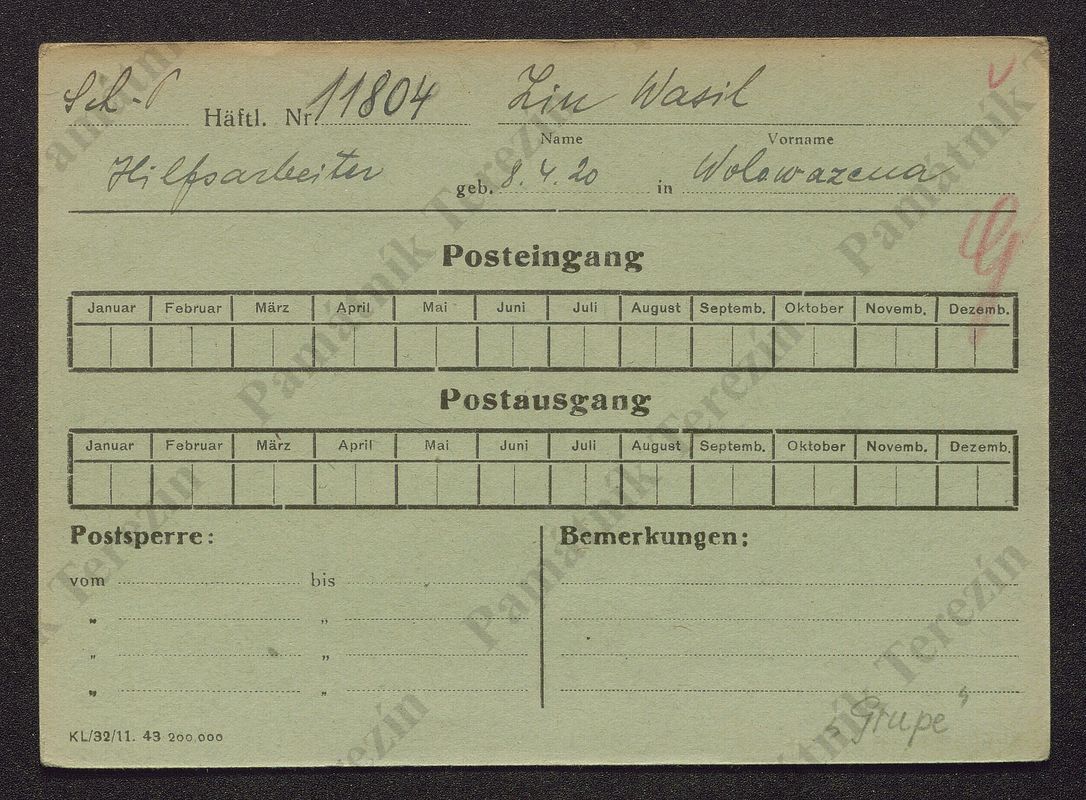 Sch-P Häftl. Nr. 11804 Ziu Wasil
Name Vorname
Hilfsarbeiter geb. 8.4.20 in Wolowazena
Posteingang
Januar Februar März April Mai Juni Juli August Septemb. Oktober Novemb. Dezemb.
Postausgang
Januar Februar März April Mai Juni Juli August Septemb. Oktober Novemb. Dezemb.
Postsperre: Bemerkungen:
vom bis
„ „
„ „
„ „
„Grupe"
KL/32/11. 43 200.000
Památník Terezín